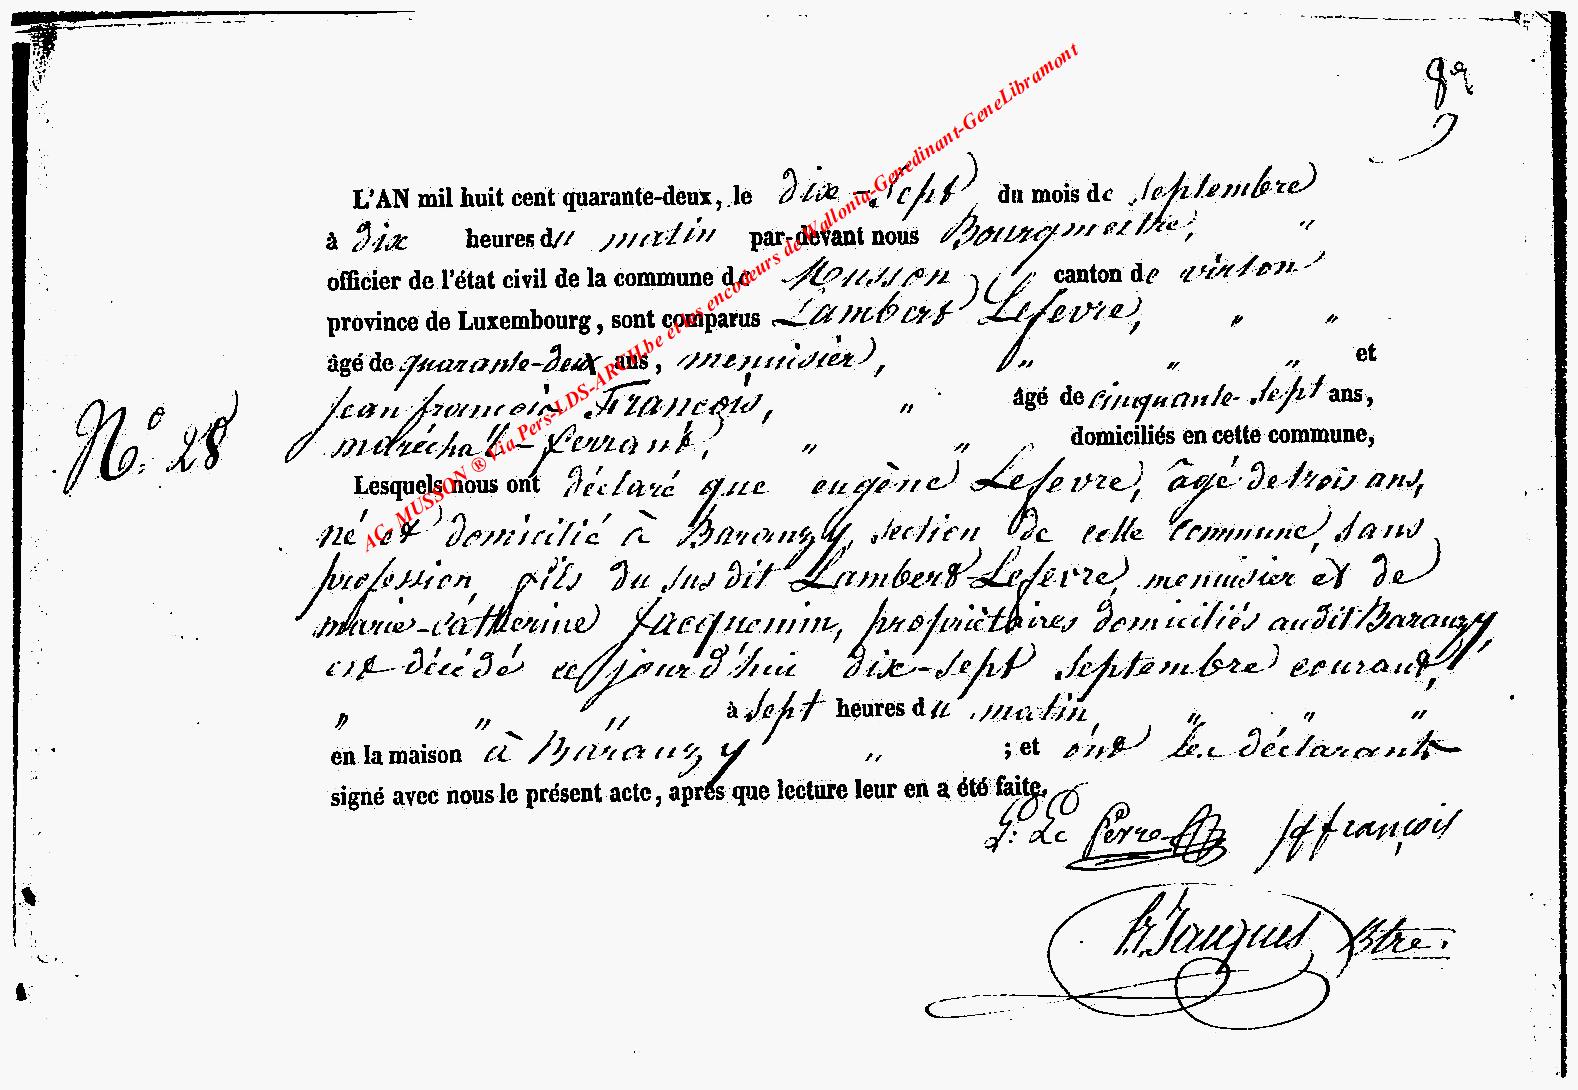 L'AN mil huit cent quarante-deux, le dix-sept du mois de septembre
à dix heures du matin par-devant nous Bourgmestre, "
officier de l'état civil de la commune de Musson canton de virton
province de Luxembourg, sont comparus Lambert Lefevre, " "
âgé de quarante-deux ans, menuisier, " " " et
jean françois François, " âgé de cinquante-sept ans,
maréchal-ferrant, " " domiciliés en cette commune,
N.° 28
Lesquels nous ont déclaré que eugène Lefevre, âgé de trois ans,
né et domicilié à Baranzy, section de cette commune, sans
profession, fils du susdit Lambert Lefevre, menuisier et de
marie-catherine Jacquemin, propriétaires domiciliés audit Baranzy,
est décédé ce jourd'hui dix-sept septembre courant,
" " " à sept heures du matin, " " "
en la maison à Baranzy " ; et ont les déclarants
signé avec nous le présent acte, après que lecture leur en a été faite.
L: Le fevre JF françois
Jacques Btre.
AC- MUSSON ® Via Pers-LDS-ARCH.be et les encodeurs de Wallonia-Genedinant-GeneLibramont